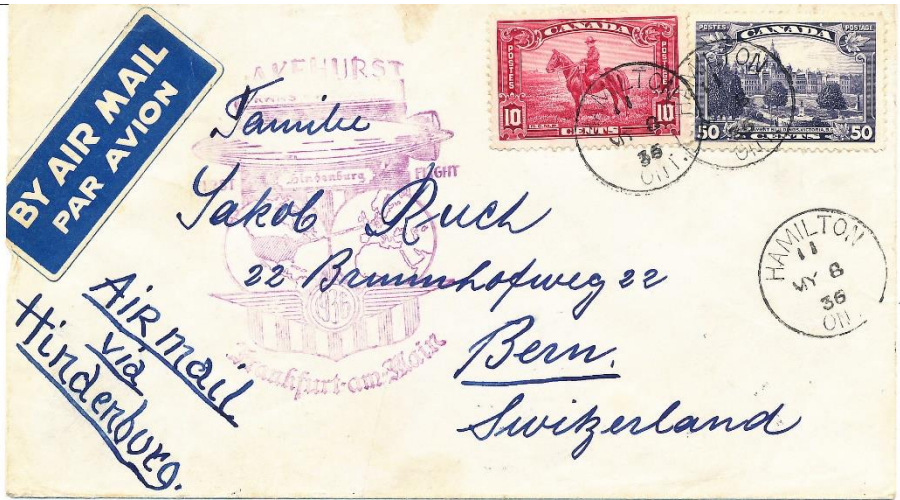 BY AIR MAIL
PAR AVION
LAKEHURST
TRANS
Hindenburg
FIRST FLIGHT
1936
Frankfurt-am-Main
CANADA
POSTES POSTAGE
10 CENTS 10
CANADA
POSTES POSTAGE
50 CENTS 50
HAMILTON
11
MY 8
36
ONT.
HAMILTON
ONT.
HAMILTON
11
MY 8
36
ON
Familie
Jakob Ruch
22 Brunnhofweg 22
Bern.
Switzerland
AIR mail
via
Hindenburg.